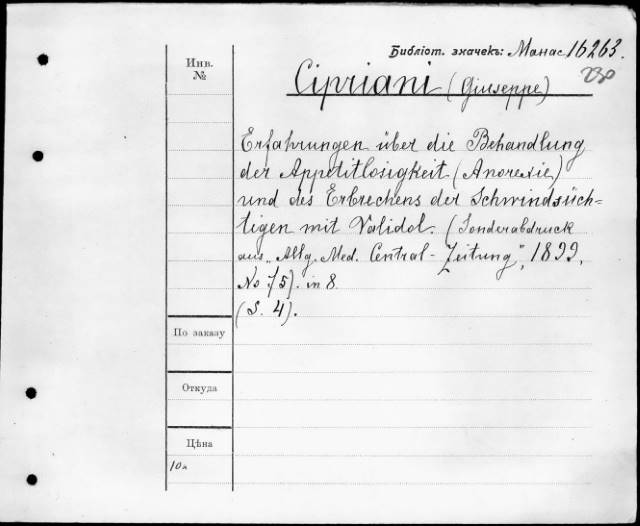 Библіот. значекъ: Манас 16263.
230
Инв.
№
Cipriani (Giuseppe)
Erfahrungen über die Behandlung
der Appetitlosigkeit (Anorexie)
und des Erbrechens der Schwindsüch-
tigen mit Validol. (Sonderabdruck
aus „Allg. Med. Central-Zeitung", 1899,
No 75). in 8.
(S. 4).
По заказу
Откуда
Цѣна